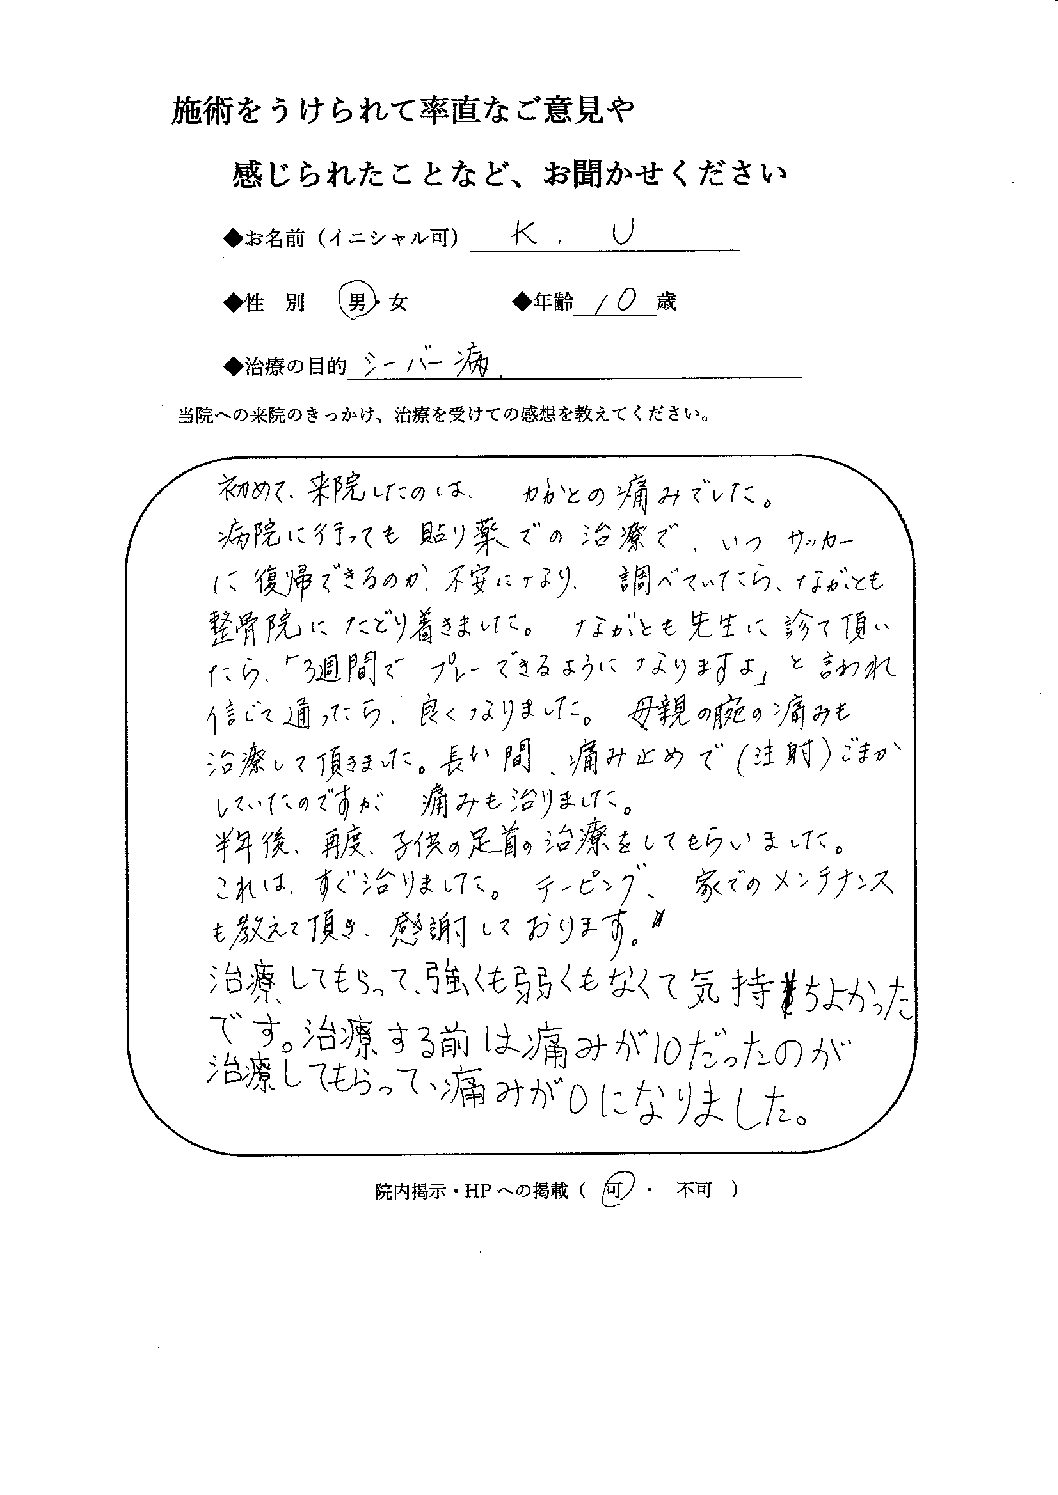 施術をうけられて率直なご意見や
感じられたことなど、お聞かせください
◆お名前（イニシャル可） K.U
◆性別 男・女 ◆年齢 10 歳
◆治療の目的 シーバー病.
当院への来院のきっかけ、治療を受けての感想を教えてください。
初めて、来院したのは、かかとの痛みでした。
病院に行っても貼り薬での治療で、いつサッカー
に復帰できるのか、不安になり、調べていたら、ながとも
整骨院にたどり着きました。ながとも先生に診て頂い
たら、「3週間でプレーできるようになりますよ」と言われ
信じて通ったら、良くなりました。母親の腕の痛みも
治療して頂きました。長い間、痛み止めで(注射)ごまか
していたのですが痛みも治りました。
半年後、再度、子供の足首の治療をしてもらいました。
これは、すぐ治りました。テーピング、家でのメンテナンス
も教えて頂き、感謝しております。
治療してもらって、強くも弱くもなくて気持ちよかった
です。治療する前は痛みが10だったのが
治療してもらって、痛みが0になりました。
院内掲示・HPへの掲載（ 可 ・ 不可 ）